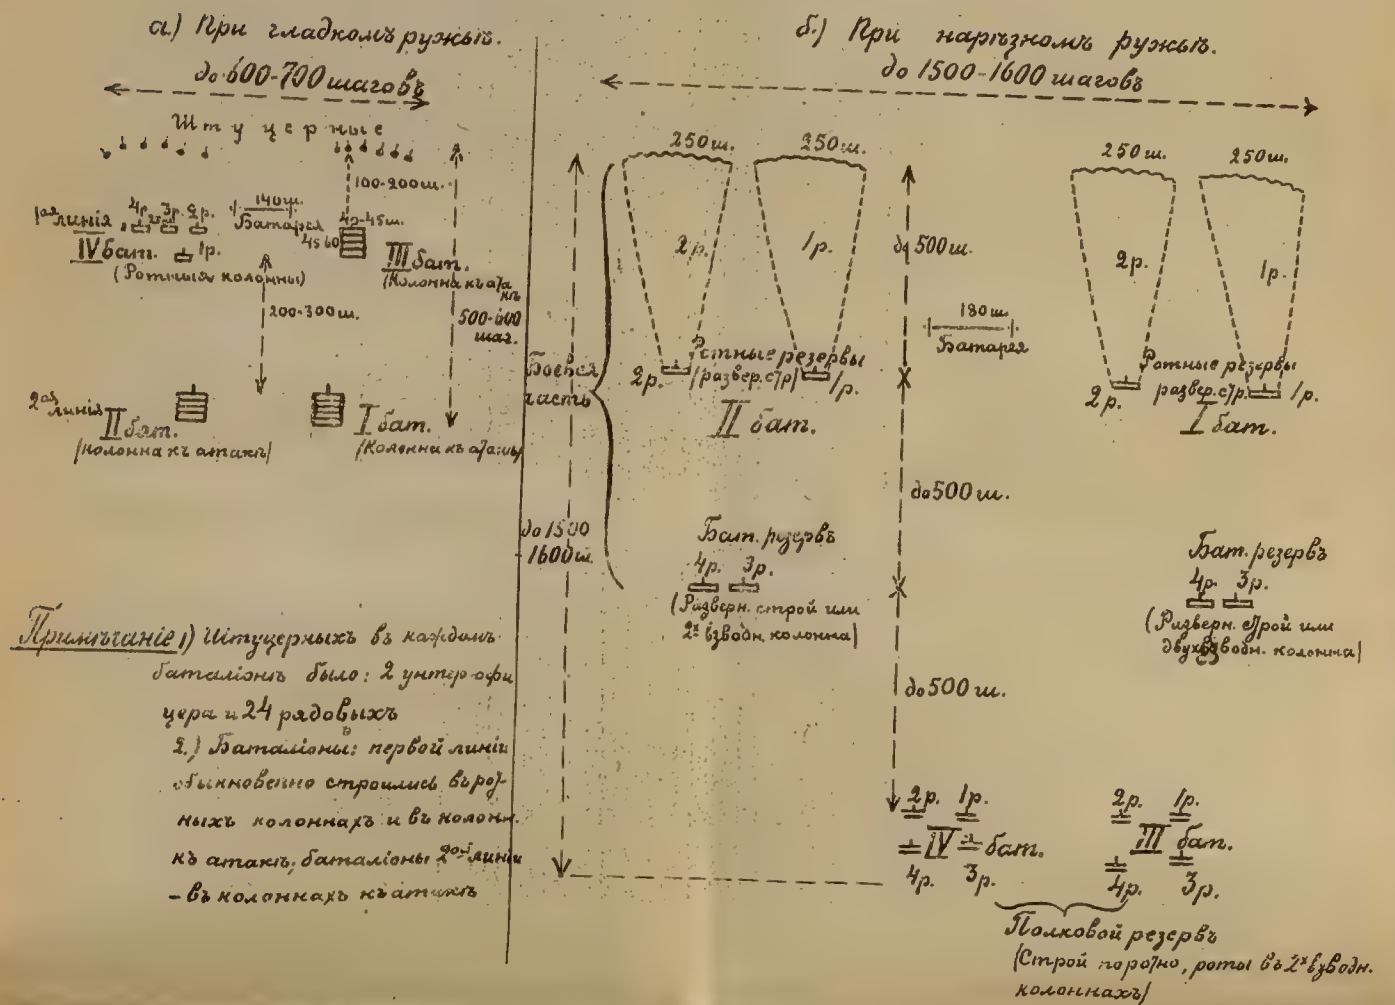 а) При гладкомъ ружьѣ.
до 600-700 шаговъ
Штуцерные
100-200ш.
140ш.
Батарея
40-45ш.
45 60
1ая линія
4р. 3р. 2р.
25
IV бат.
1р.
(Ротныя колонны)
III бат.
(Колонна къ атакѣ
200-300ш.
500-600
шаг.
2ая линія
II бат.
(колонна къ атакѣ)
I бат.
(Колонна къ атакѣ)
Примѣчаніе 1) Штуцерныхъ въ каждомъ
баталіонѣ было: 2 унтер-офи
цера и 24 рядовыхъ
2.) Баталіоны: первой линіи
обыкновенно строились въ рот-
ныхъ колоннахъ и въ колонн.
къ атакѣ; баталіоны 2ой линіи
- въ колоннахъ къ атакѣ
б.) При нарѣзномъ ружьѣ.
до 1500-1600 шаговъ
250ш. 250ш.
2р. 1р.
до 500ш.
180ш.
Батарея
Боевая
часть
Ротные резервы
2р. (развер. стр) 1р.
II бат.
250ш. 250ш.
2р. 1р.
Ротные резервы
2р. развер. стр. 1р.
I бат.
до 500ш.
до 1500
1600ш.
Бат. резервъ
4р. 3р.
(Разверн. строй или
2х взводн. колонна)
Бат. резервъ
4р. 3р.
(Разверн. строй или
двухвзводн. колонна)
до 500ш.
2р. 1р.
IV бат.
4р. 3р.
2р. 1р.
III бат.
4р. 3р.
Полковой резервъ
(Строй поротно, роты въ 2х взводн.
колоннахъ)